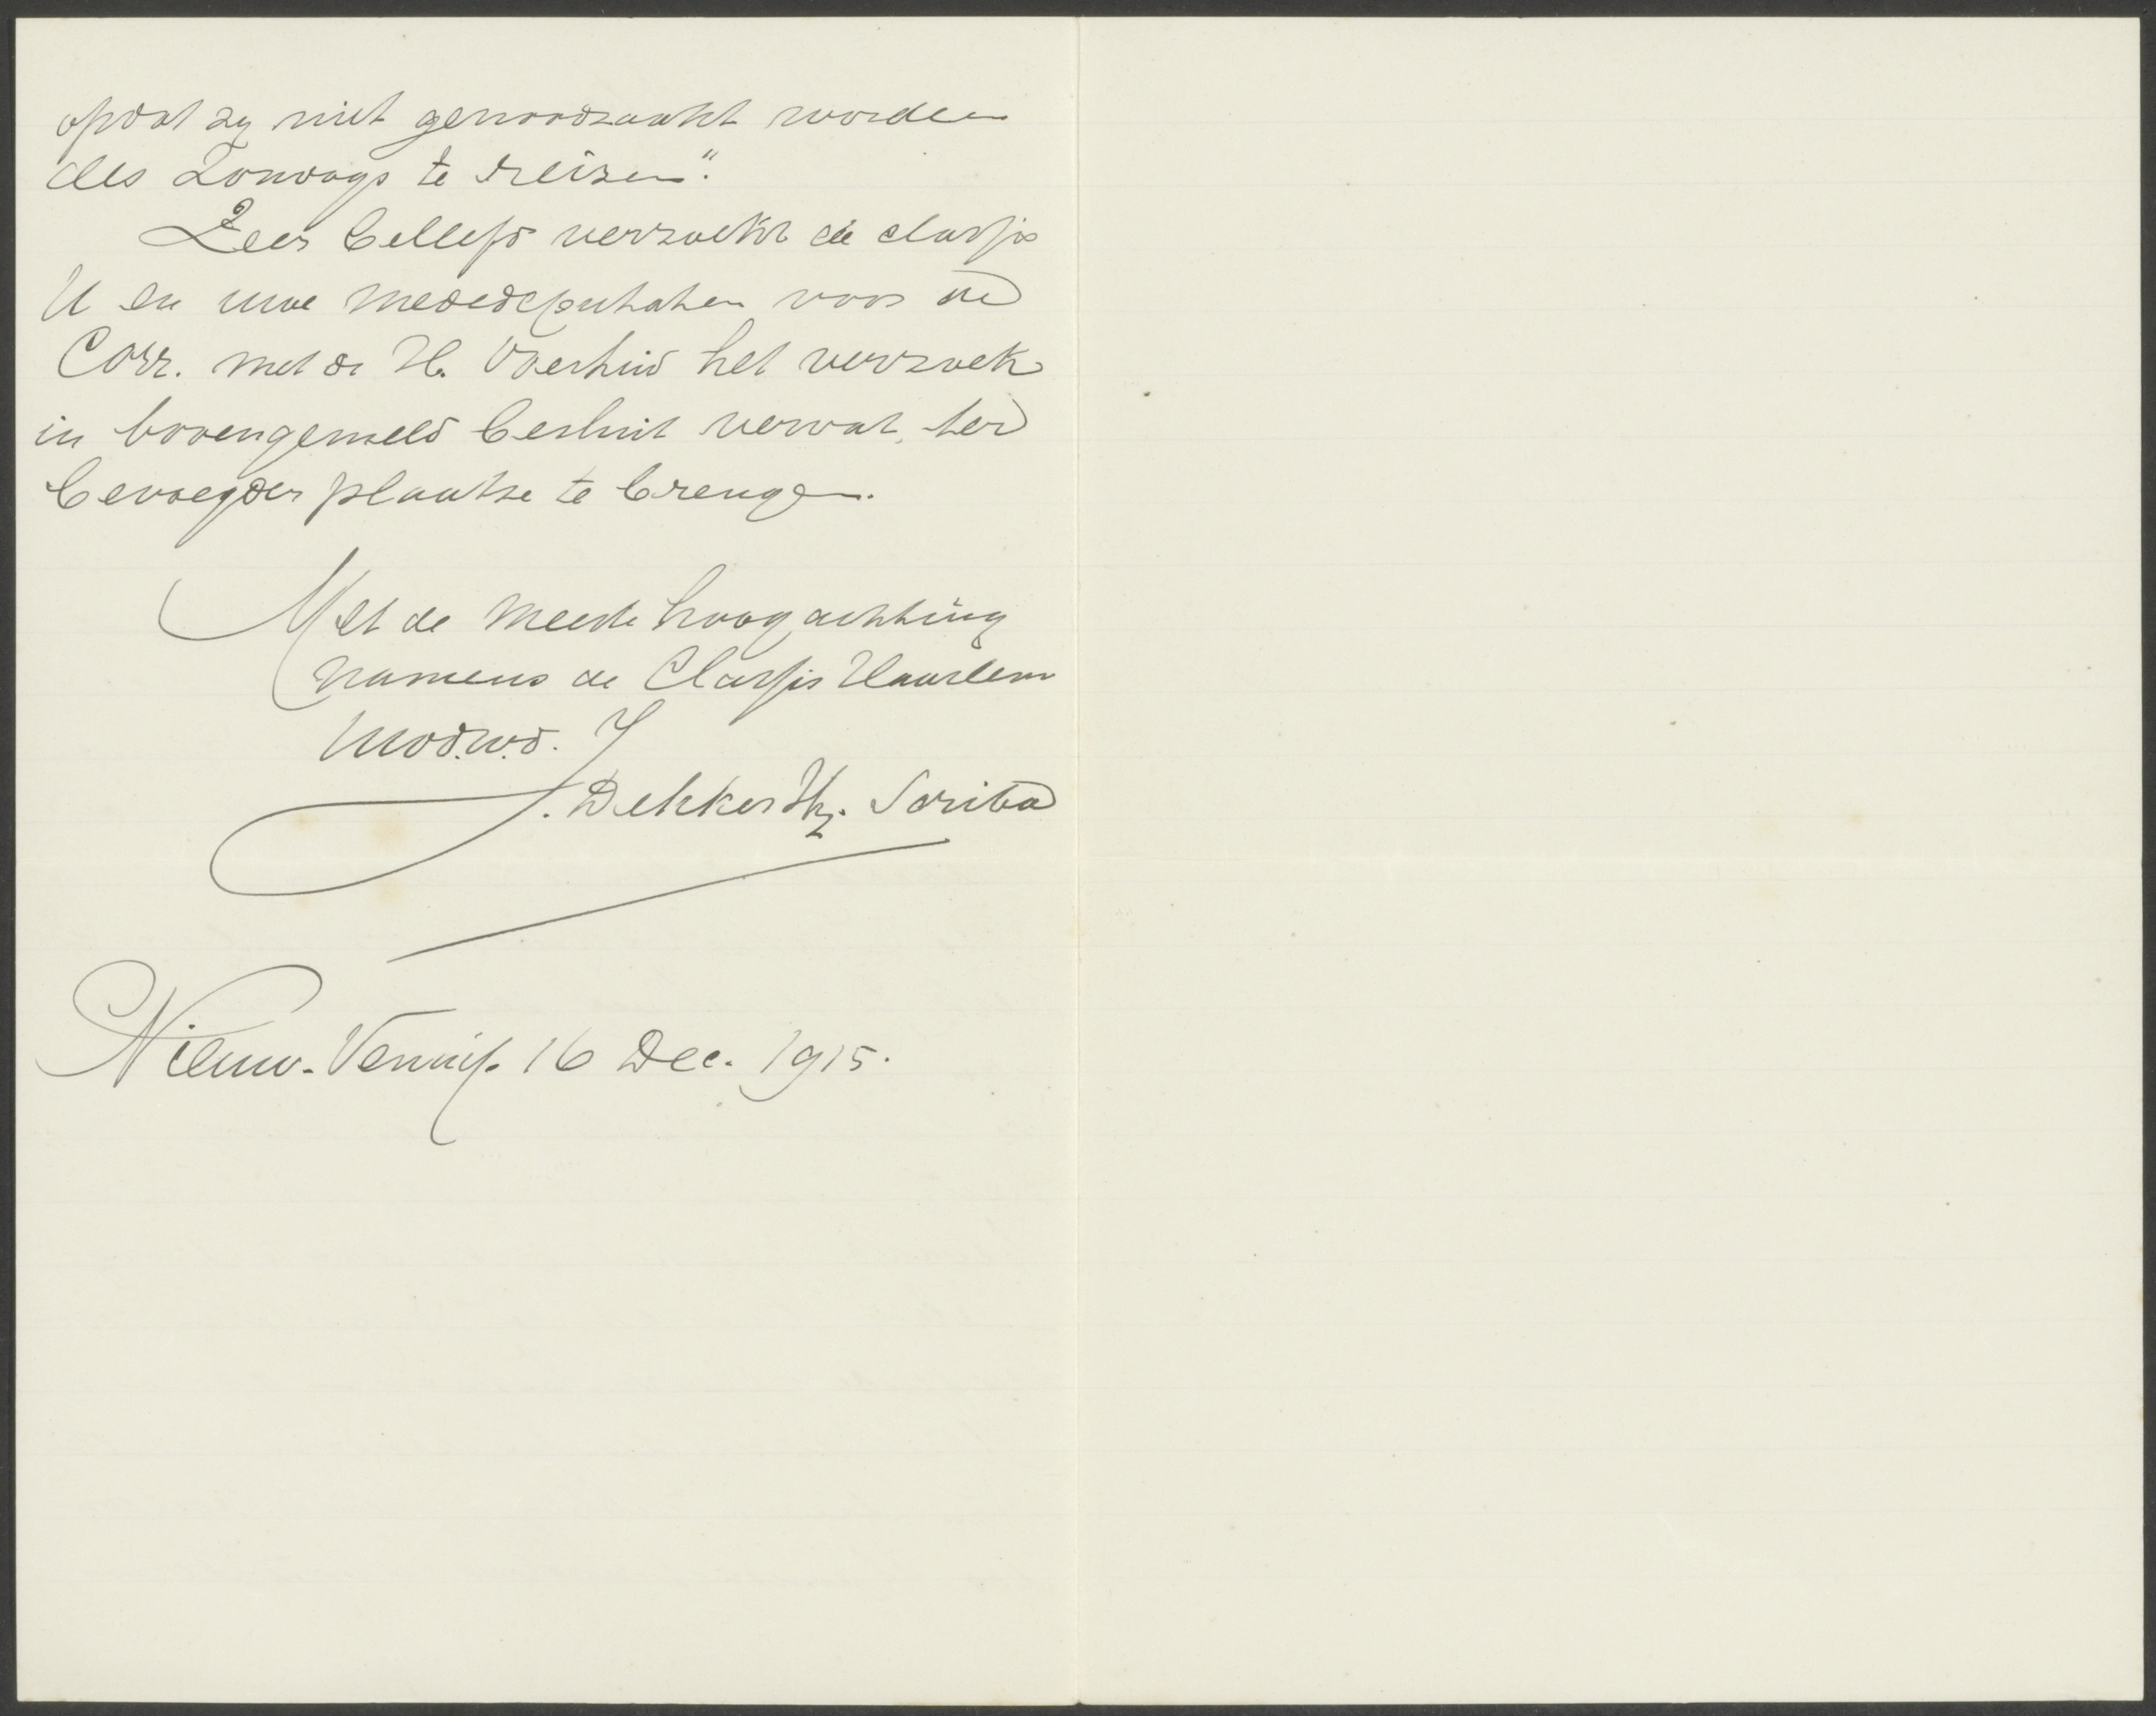 opdat zij niet genoodzaakt worden
des Zondags te reizen."
Zeer beleefd verzoekt de classis
U en uwe mededeputaten voor de
Corr. met de H. Overheid het verzoek
in bovengemeld besluit vervat, ter
bevoegder plaatse te brengen.
Met de meeste hoogachting
namens de Classis Haarlem
Uw dw. d.
J. Dekker Hz. Scriba
Nieuw-Vennip. 16 Dec. 1915.